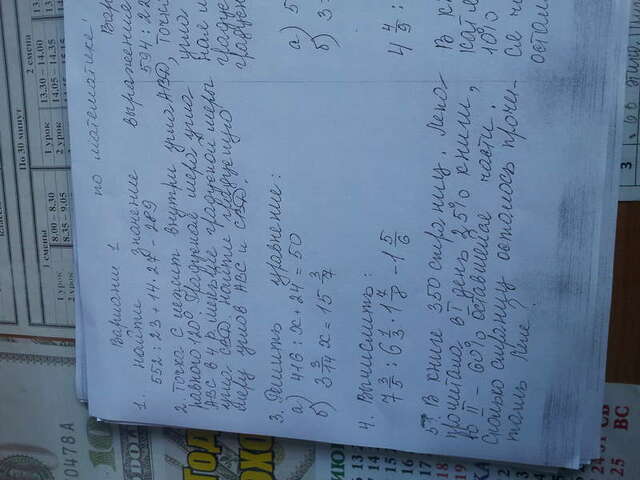 По 30 минут
1 смены
2 смена
1 урок
8.00 – 8.30
1 урок
13.30 – 14.00
2 урок
8.35 – 9.05
2 урок
14.05 – 14.35
0478 A
по математике
Вариант 1
1. Найти значение выражения
552 : 23 + 14 · 27 – 289
2. Точка С лежит внутри угла АВД,
равного 120°. Градусная мера угла
АВС в 4 р. меньше градусной меры
угла СВД. Найти градусную
меру углов АВС и СВД.
3. Решить уравнение:
а) 416 : х + 24 = 50
б) 3 3/14 х = 15 3/7
4. Вычислить:
7 3/5 : 6 1/3 · 1 7/8 – 1 5/6
5. В книге 350 страниц. Лена
прочитала в I день 25% книги,
во II – 60% оставшейся части.
Сколько страниц осталось прочи-
тать Лене?
594 : 22
точка
угла
градус
градусн
а) 5
б) 3
4 4/9 :
В кн
10%
ся ч
остал
24 31 СБ
25 ВС
3